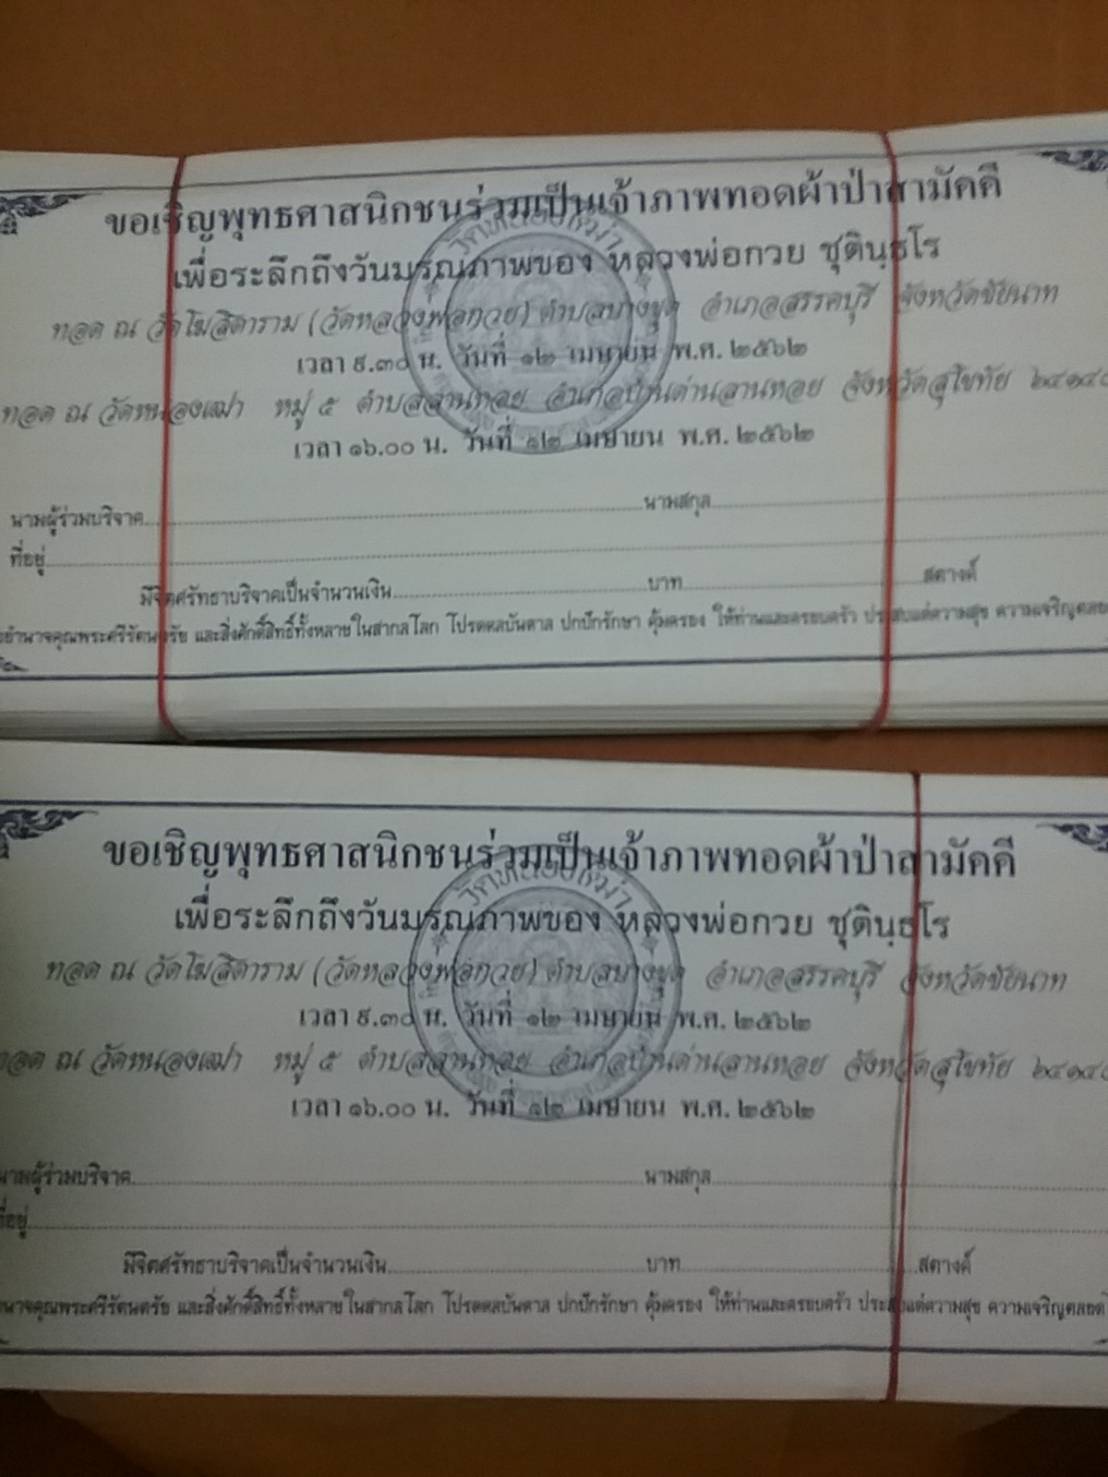 ขอเชิญพุทธศาสนิกชนร่วมเป็นเจ้าภาพทอดผ้าป่าสามัคคี
เพื่อระลึกถึงวันมรณภาพของ หลวงพ่อกวย ชุตินฺธโร
ทอด ณ วัดโฆสิตาราม (วัดหลวงพ่อกวย) ตำบลบางขุด อำเภอสรรคบุรี จังหวัดชัยนาท
เวลา ๙.๓๐ น. วันที่ ๑๒ เมษายน พ.ศ. ๒๕๖๒
ทอด ณ วัดหนองเฒ่า หมู่ ๕ ตำบลลานหอย อำเภอบ้านด่านลานหอย จังหวัดสุโขทัย
เวลา ๑๖.๐๐ น. วันที่ ๑๒ เมษายน พ.ศ. ๒๕๖๒
นามผู้ร่วมบริจาค นามสกุล
ที่อยู่
มีจิตศรัทธาบริจาคเป็นจำนวนเงิน บาท สตางค์
อำนาจคุณพระศรีรัตนตรัย และสิ่งศักดิ์สิทธิ์ทั้งหลายในสากลโลก โปรดดลบันดาล ปกปักรักษา คุ้มครอง ให้ท่านและครอบครัว ประสบแต่ความสุข ความเจริญตลอด
ขอเชิญพุทธศาสนิกชนร่วมเป็นเจ้าภาพทอดผ้าป่าสามัคคี
เพื่อระลึกถึงวันมรณภาพของ หลวงพ่อกวย ชุตินฺธโร
ทอด ณ วัดโฆสิตาราม (วัดหลวงพ่อกวย) ตำบลบางขุด อำเภอสรรคบุรี จังหวัดชัยนาท
เวลา ๙.๓๐ น. วันที่ ๑๒ เมษายน พ.ศ. ๒๕๖๒
ทอด ณ วัดหนองเฒ่า หมู่ ๕ ตำบลลานหอย อำเภอบ้านด่านลานหอย จังหวัดสุโขทัย
เวลา ๑๖.๐๐ น. วันที่ ๑๒ เมษายน พ.ศ. ๒๕๖๒
นามผู้ร่วมบริจาค นามสกุล
ที่อยู่
มีจิตศรัทธาบริจาคเป็นจำนวนเงิน บาท สตางค์
คุณพระศรีรัตนตรัย และสิ่งศักดิ์สิทธิ์ทั้งหลายในสากลโลก โปรดดลบันดาล ปกปักรักษา คุ้มครอง ให้ท่านและครอบครัว ประสบแต่ความสุข ความเจริญตลอด